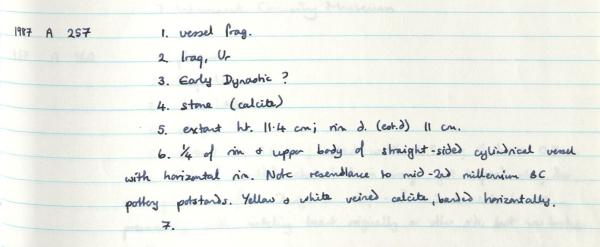 1987 A 257 1. vessel frag.
2. Iraq, Ur
3. Early Dynastic ?
4. stone (calcite)
5. extant ht. 11.4 cm; rim d. (est.d) 11 cm.
6. 1/4 of rim & upper body of straight-sided cylindrical vessel
with horizontal rim. Note resemblance to mid-2nd millennium BC
pottery potstands. Yellow & white veined calcite, banded horizontally.
7.